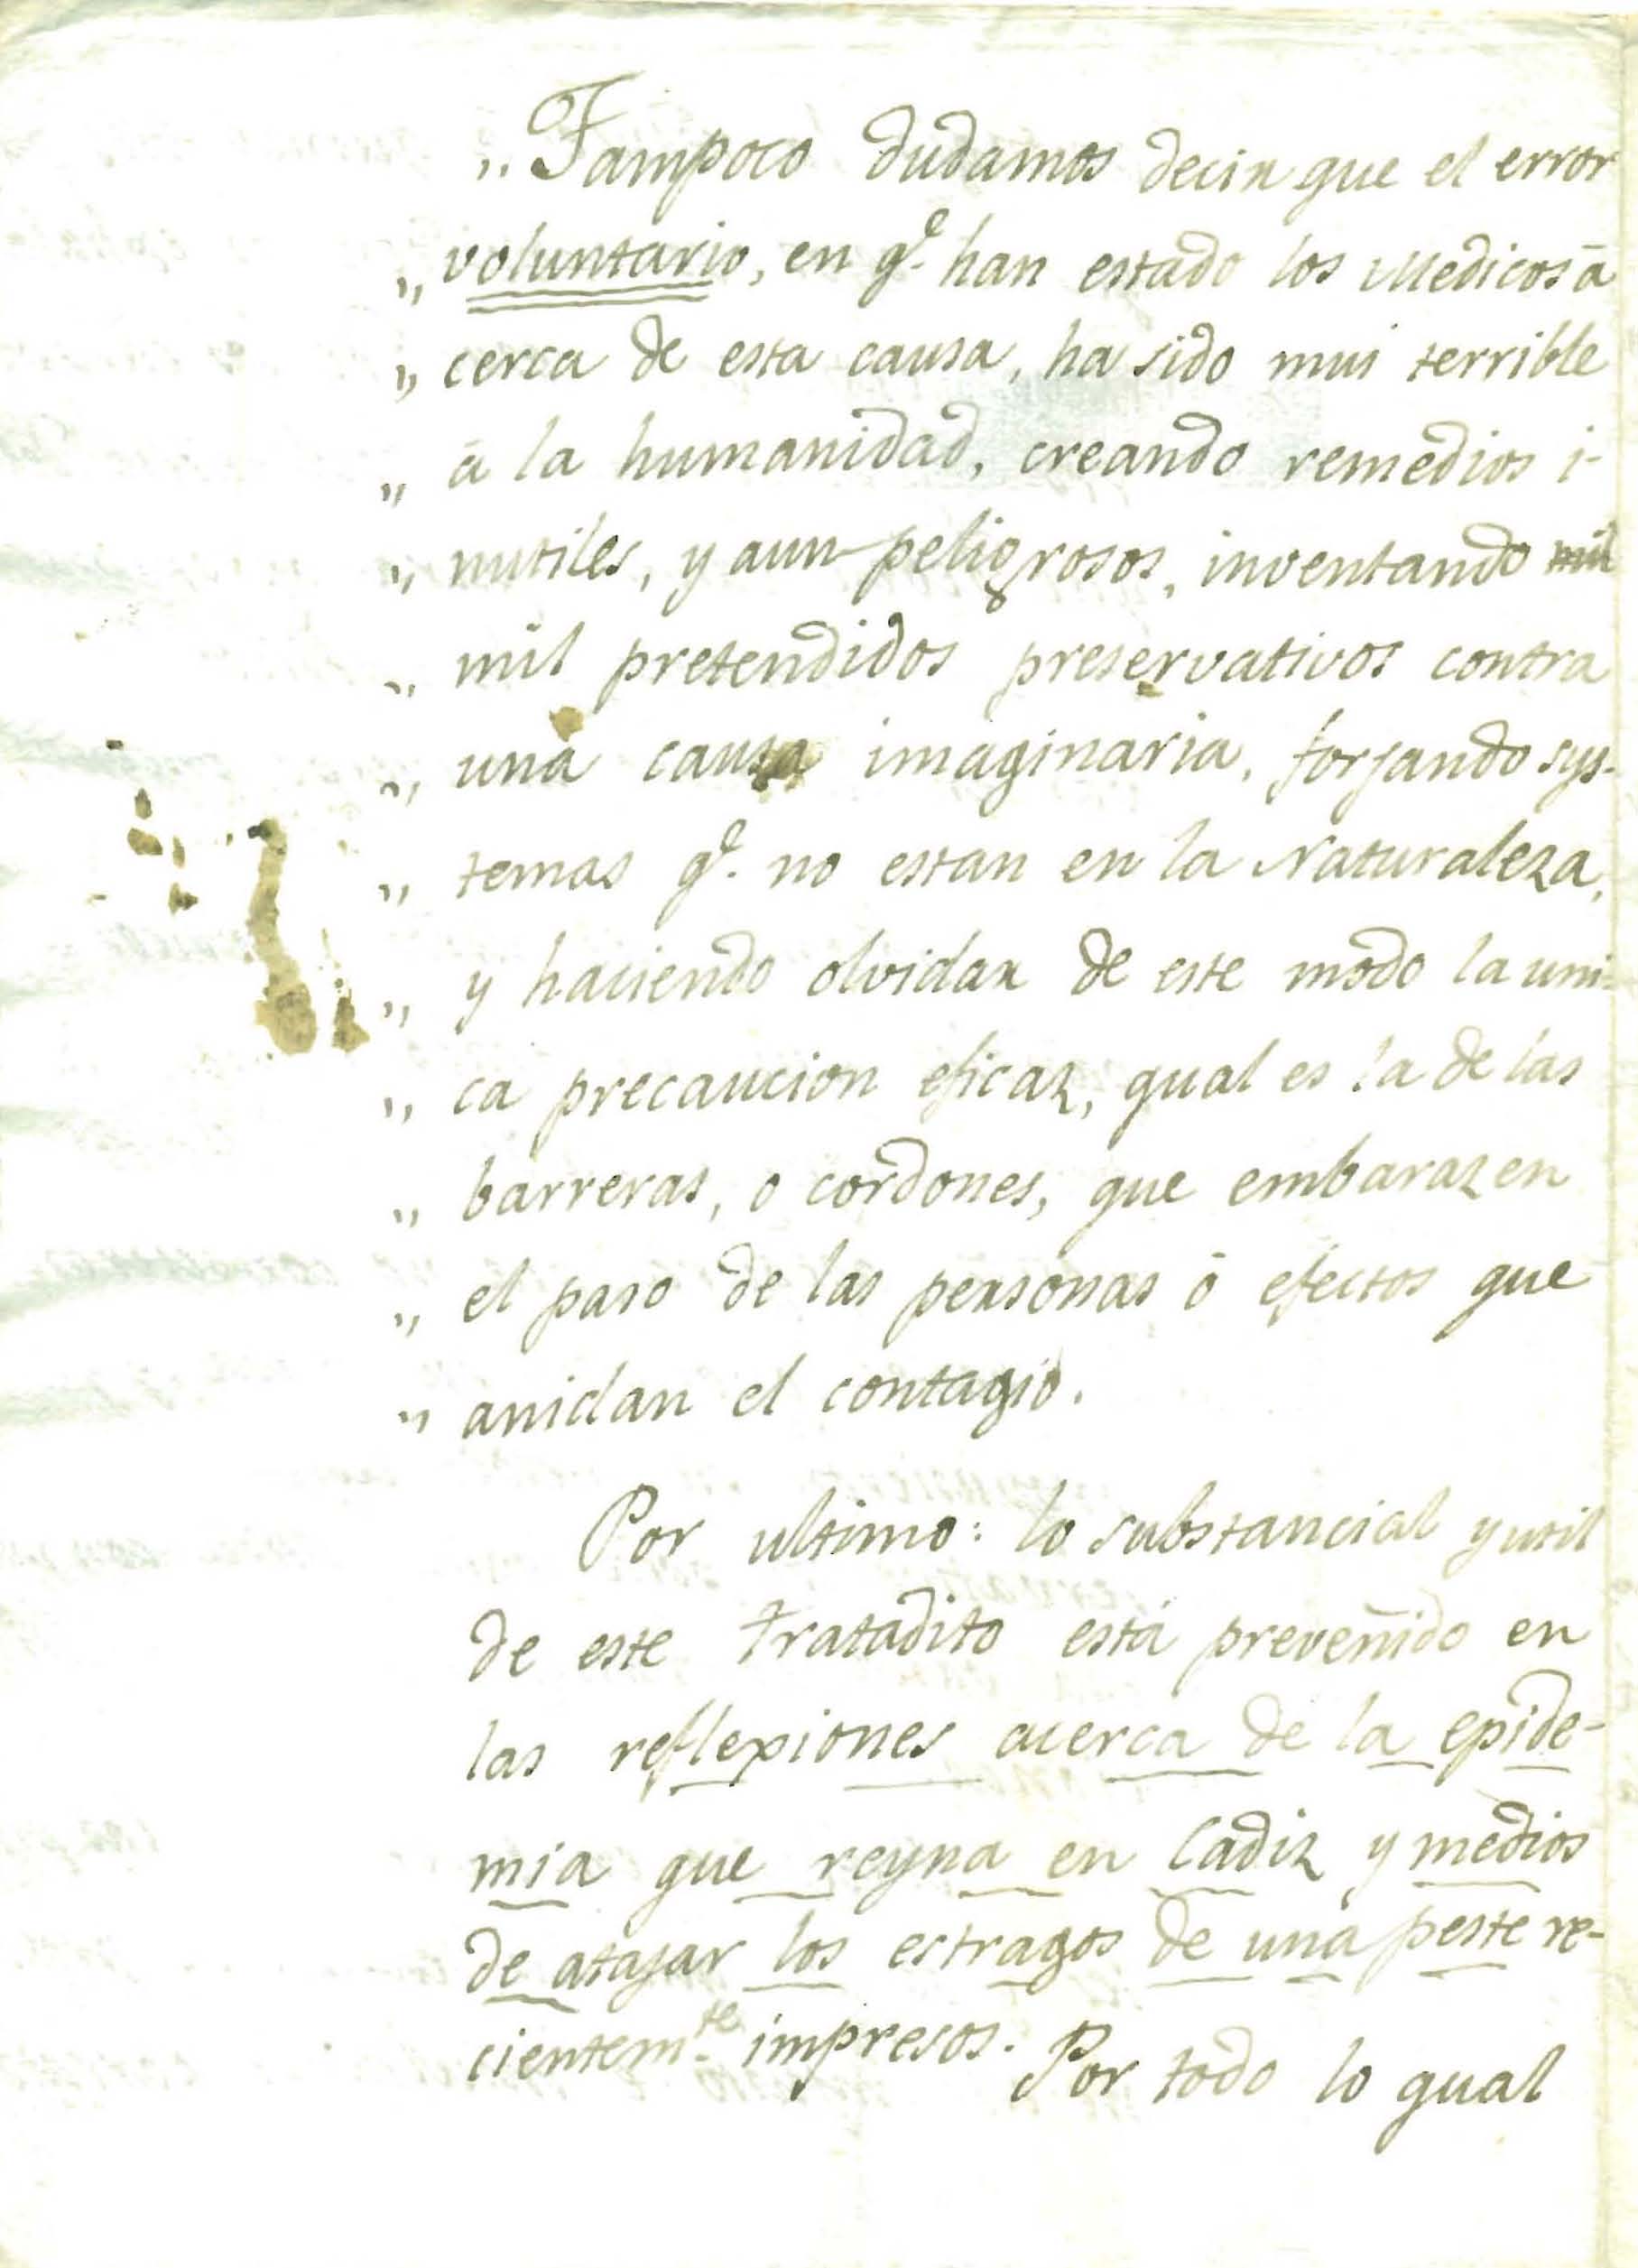 „ Tampoco dudamos decir que el error
„ voluntario, en q.e han estado los Medicos á
„ cerca de esta causa, ha sido mui terrible
„ á la humanidad, creando remedios i-
„ nutiles, y aun peligrosos, inventando mil
„ mil pretendidos preservativos contra
„ una causa imaginaria, forjando sys-
„ temas q.e no estan en la Naturaleza,
„ y haciendo olvidar de este modo la uni-
„ ca precaucion eficaz, qual es la de las
„ barreras, o cordones, que embarazen
„ el paso de las personas ó efectos que
„ anidan el contagio.
Por ultimo: lo substancial y util
de este tratadito está prevenido en
las reflexiones acerca de la epide-
mia que reyna en Cadiz y medios
de atajar los estragos de una peste re-
cientem.te impresos. Por todo lo qual